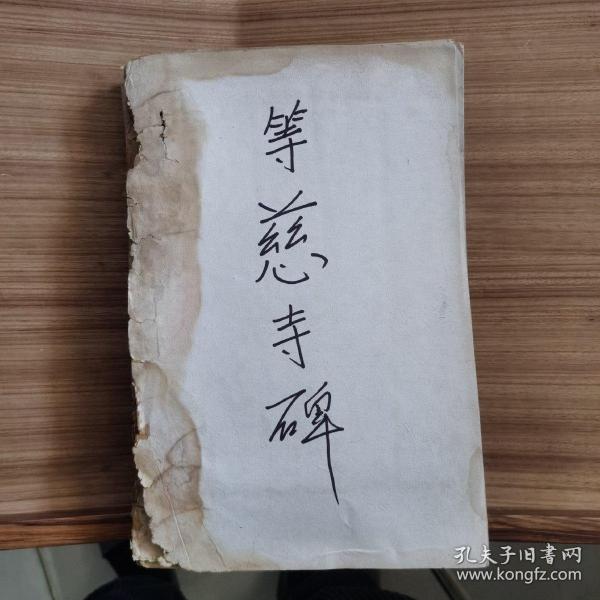 等慈寺碑
孔夫子旧書网
www.kongfz.com